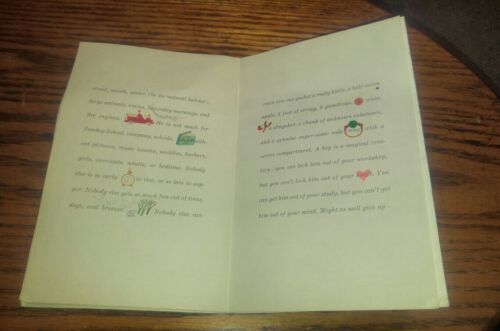 street, woods, water (in its natural habitat),
large animals, trains, Saturday mornings, and
fire engines. He is not much for
Sunday School, company, schools, with-
out pictures, music lessons, neckties, barbers,
girls, overcoats, adults, or bedtime. Nobody
else is so early to rise, or so late to sup-
per. Nobody else gets so much fun out of trees,
dogs, and breezes. Nobody else can
cram into one pocket a rusty knife, a half-eaten
apple, 3 feet of string, 2 gumdrops, 6 cents,
a slingshot, a chunk of unknown substance,
and a genuine super-sonic code with a
secret compartment. A boy is a magical crea-
ture - you can lock him out of your workshop,
but you can't lock him out of your t. You
can get him out of your study, but you can't get
him out of your mind. Might as well give up -